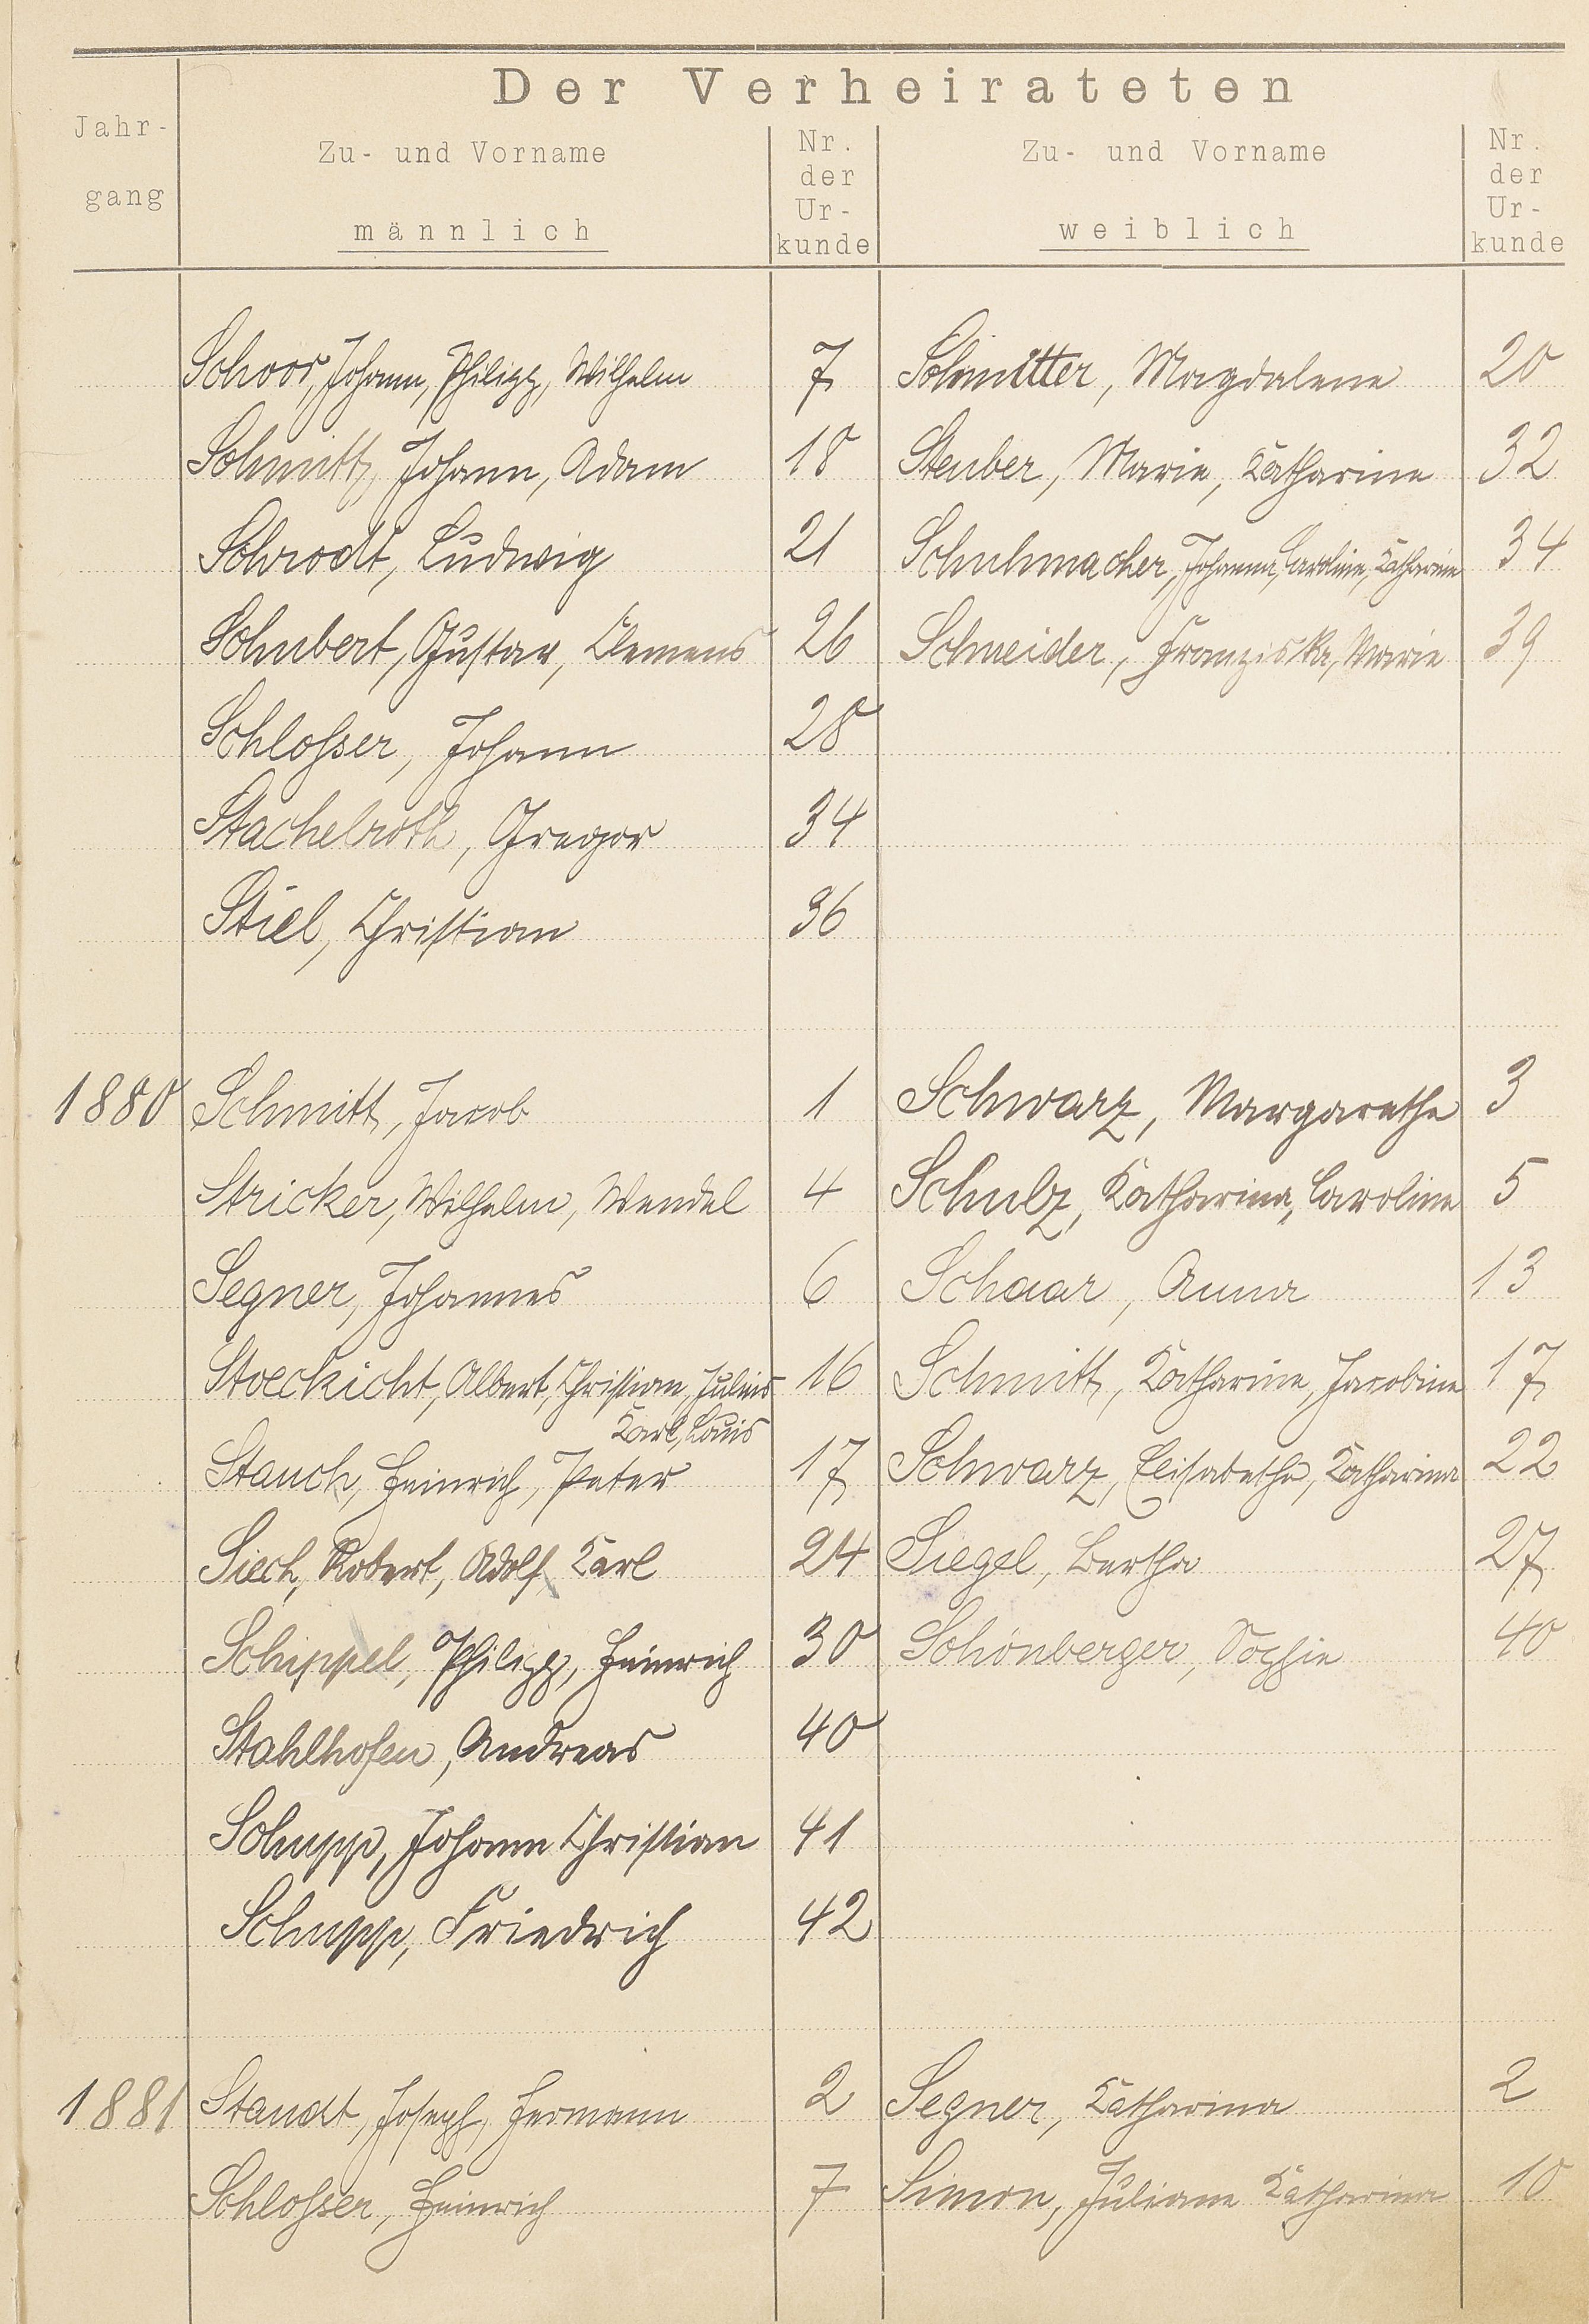 Der Verheirateten
Jahr-
gang
Zu- und Vorname
männlich
Nr.
der
Ur-
kunde
Zu- und Vorname
weiblich
Nr.
der
Ur-
kunde
Schoor, Johann, Philipp, Wilhelm 7 Schmitter, Magdalene 20
Schmitt, Johann, Adam 18 Steuber, Marie, Katharine 32
Schrodt, Ludwig 21 Schuhmacher, Johanna, Caroline, Katharine 34
Schubert, Gustav, Clemens 26 Schneider, Franziska, Marie 39
Schlosser, Johann 28
Stachelroth, Gregor 34
Stiel, Christian 36
1880 Schmitt, Jacob 1 Schwarz, Margarethe 3
Stricker, Wilhelm, Wendel 4 Schulz, Katharina, Caroline 5
Segner, Johannes 6 Schaar, Anna 13
Stoeckicht, Albert, Christian, Julius 16 Schmitt, Katharine, Jacobine 17
Karl, Louis
Stauch, Heinrich, Peter 17 Schwarz, Elisabetha, Katharina 22
Siech, Robert, Adolf Karl 24 Siegel, Bertha 27
Schippel, Philipp, Heinrich 30 Schönberger, Sophie 40
Stahlhofen, Andreas 40
Schupp, Johann Christian 41
Schupp, Friedrich 42
1881 Staudt, Joseph, Hermann 2 Segner, Katharina 2
Schlosser, Heinrich 7 Simon, Juliane Katharina 10